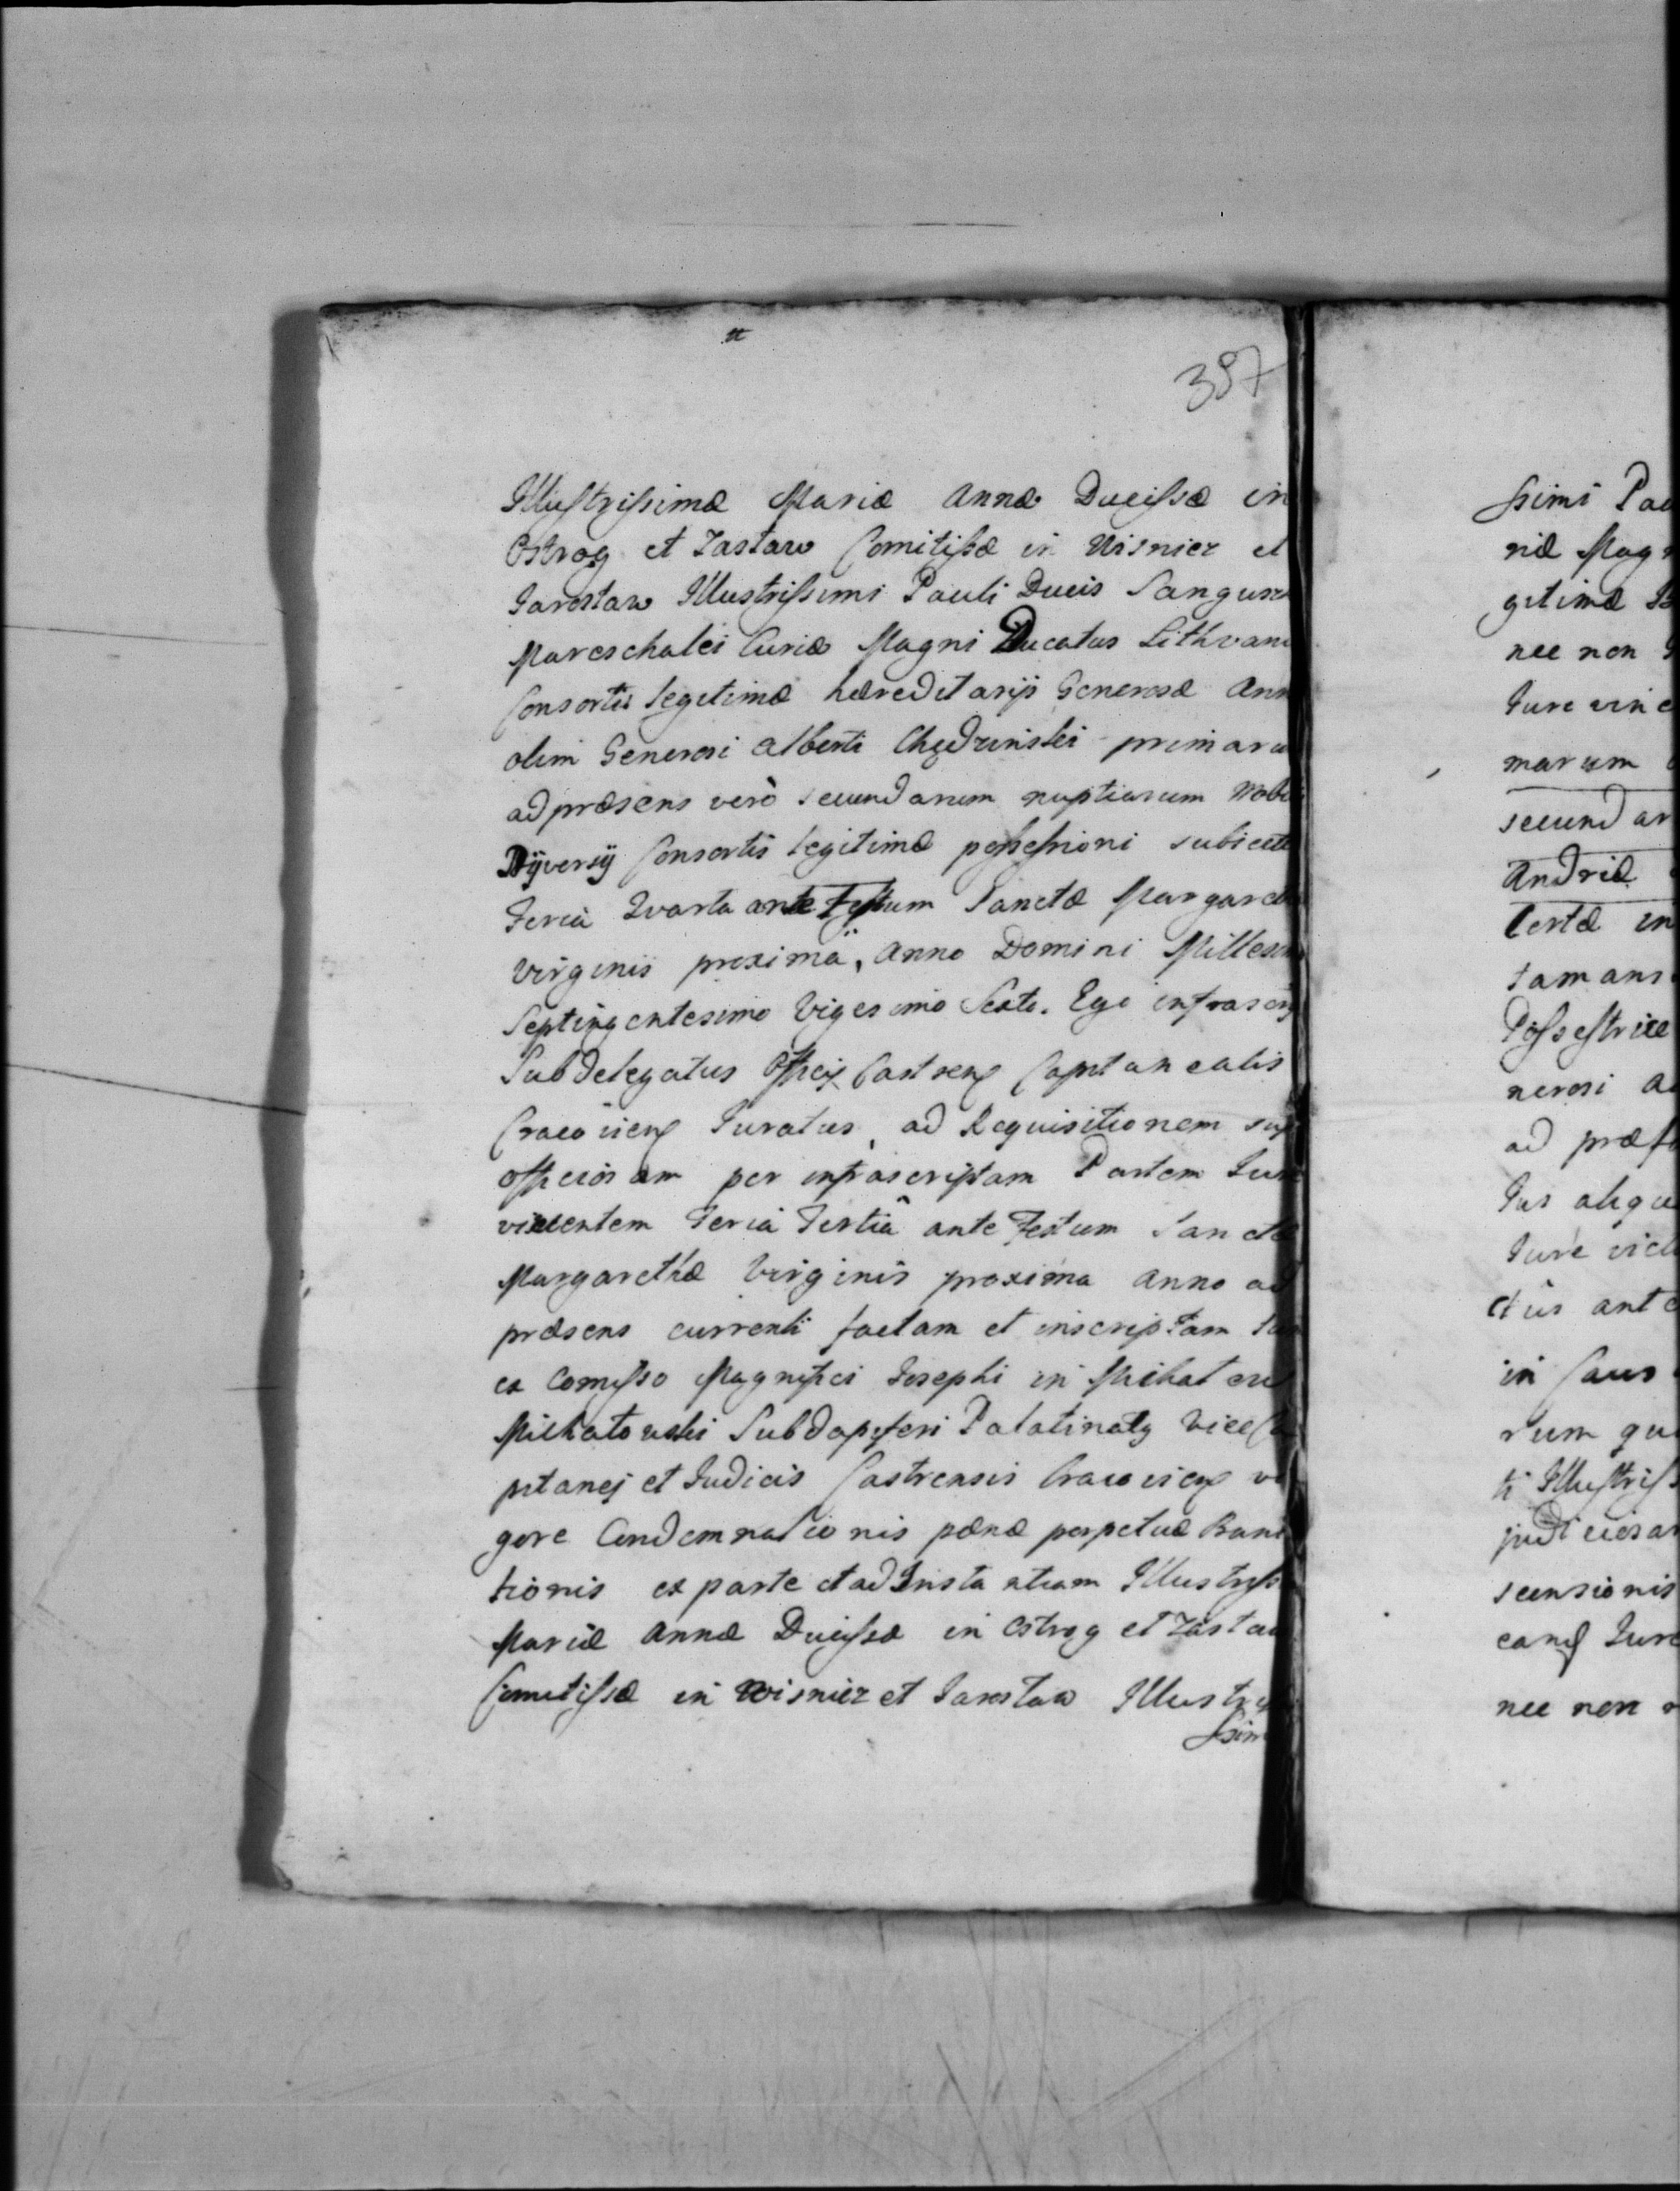 397
Illustrissimæ Mariæ Annæ Ducissæ in
Ostrog et Zasław Comitissæ in Wisnicz et
Jarosław Illustrissimi Pauli Ducis Sangusz
Mareschalci Curiæ Magni Ducatus Lithvani
Consortis legitimæ hæreditarijs Generosæ Ann
olim Generosi Alberti Chądzinski primaru
ad præsens verò secundarum nuptiarum Nobi
Dÿversÿ Consortis legitimæ possessioni subiect
Feria Qvarta ante Festum Sanctæ Margareth
Virginis proximâ, Anno Domini Millesim
Septingentesimo Vigesimo Sexto. Ego infrascrip
Subdelegatus Officij Castren Capitanealis
Cracovien Juratus, ad Requisitionem sup
officiosam per infrascriptam Partem Jure
vincentem Feria Tertiâ ante Festum Sanctæ
Margarethæ Virginis proxima Anno ad
præsens currenti factam et inscriptam
ex Comisso Magnifici Josephi in
Subdapiferi Palatinatus Vice Ca
pitanej et Judicis Castrensis Cracovien vi
gore Condemnationis pænæ perpetuæ Bani
tionis ex parte et ad Instantiam Illustriss
Mariæ Annæ Ducissæ in Ostrog et Zasław
Comitissæ in Wisnicz et Jarosław Illustri
ssim
ssimi Pau
riæ Magn
gitimæ
nec non
Jure vinc
marum
secundar
Andriæ
Certæ in
tam ans
Possestrice
nerosi A
ad præf
Jus aliqu
Jure vict
ctus ante
in Caus
rum qu
ti Illustriss
judiciosa
scensionis
Jure
nec non